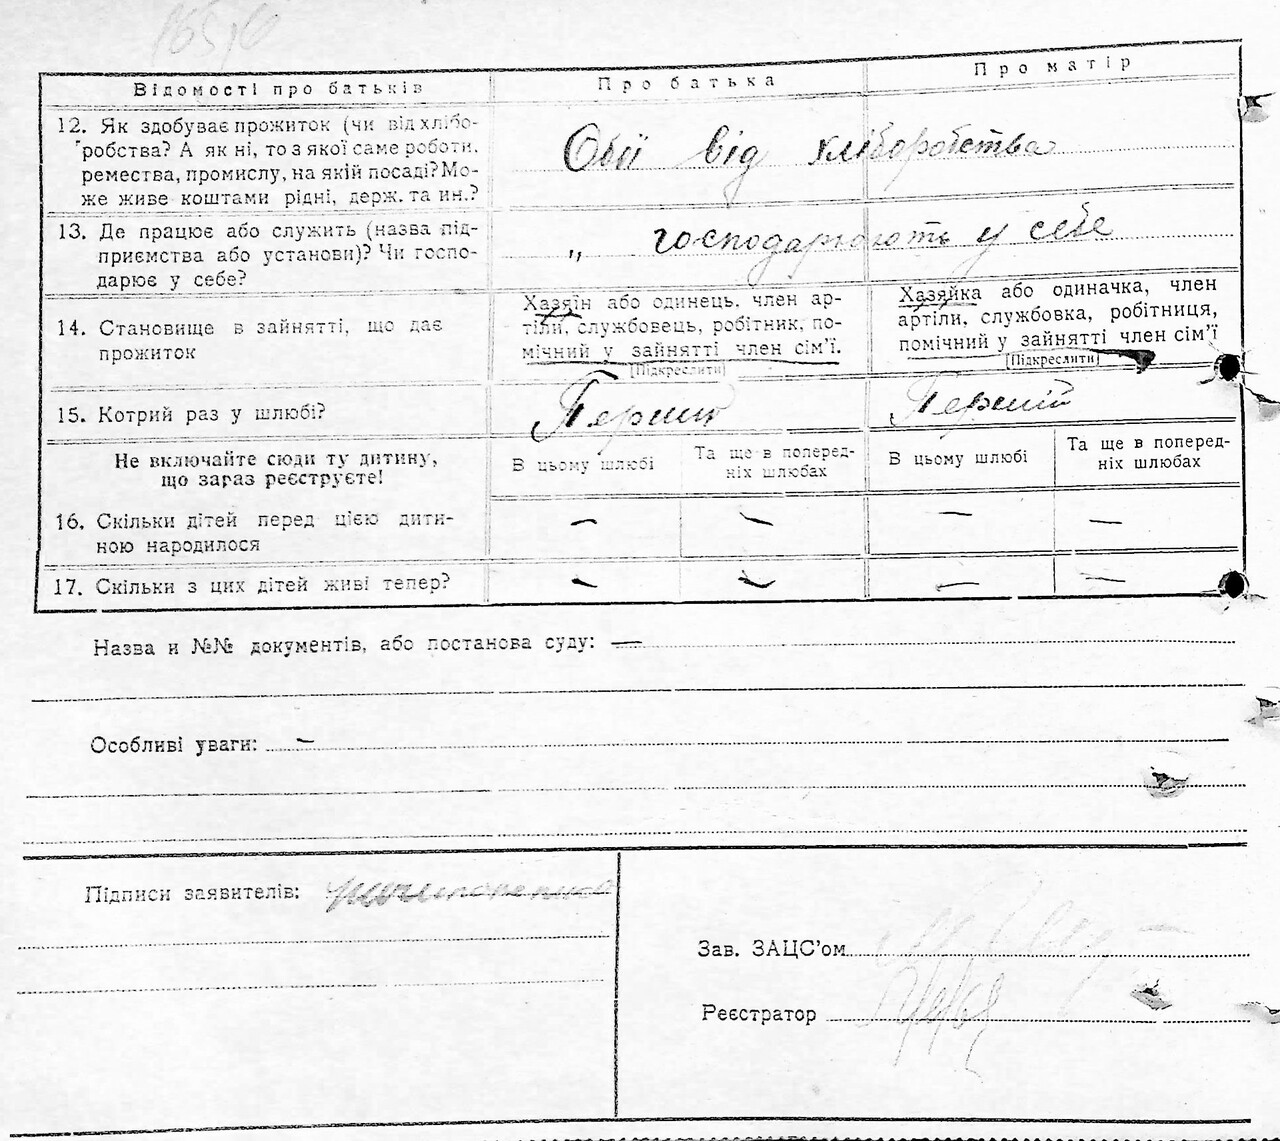 Відомості про батьків Про батька Про матір
12. Як здобуває прожиток (чи від хлібо-
робства? А як ні, то з якої саме роботи,
ремества, промислу, на якій посаді? Мо-
же живе коштами рідні, держ. та ин.?
Обої від хліборобства
13. Де працює або служить (назва під-
приємства або установи)? Чи госпо-
дарює у себе?
„ господарюють у себе
14. Становище в зайнятті, що дає
прожиток
Хазяїн або одинець, член ар-
тіли, службовець, робітник, по-
мічний у зайнятті член сім'ї.
[Підкреслити]
Хазяйка або одиначка, член
артіли, службовка, робітниця,
помічний у зайнятті член сім'ї
[Підкреслити]
15. Котрий раз у шлюбі? Перший Перший
Не включайте сюди ту дитину,
що зараз реєструєте!
В цьому шлюбі
Та ще в поперед-
ніх шлюбах
В цьому шлюбі
Та ще в поперед-
ніх шлюбах
16. Скільки дітей перед цією дити-
ною народилося
— — — —
17. Скільки з цих дітей живі тепер? — — — —
Назва и №№ документів, або постанова суду: —
Особливі уваги: —
Підписи заявителів:
Зав. ЗАЦС'ом
Реєстратор